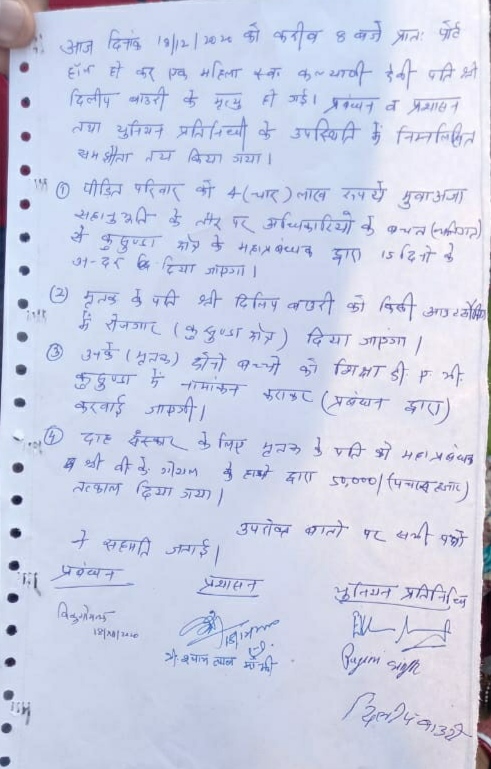 आज दिनांक 18/12/2020 को करीब 8 बजे प्रातः पोर्ट
हॉल हो कर एक महिला स्व० कल्याणी देवी पति श्री
दिलीप बाउरी के मृत्यु हो गई। प्रबंधन व प्रशासन
तथा युनियन प्रतिनिधियों के उपस्थिति में निम्नलिखित
समझौता तय किया गया।
① पीड़ित परिवार को 4 (चार) लाख रुपये मुवाअजा
सहानुभूति के तौर पर अधिकारियों के वेतन
से कुसुण्डा क्षेत्र के महाप्रबंधक द्वारा 15 दिनों के
अन्दर दिया जाएगा।
② मृतक के पति श्री दिलिप बाउरी को किसी आउटसोर्सिंग
में रोजगार (कुसुण्डा क्षेत्र) दिया जाएगा।
③ उनके (मृतक) दोनो बच्चों को शिक्षा डी ए भी
कुसुण्डा में नामांकन कराकर (प्रबंधन द्वारा)
करवाई जाएगी।
④ दाह संस्कार के लिए मृतक के पति को महाप्रबंधक
श्री वी के गोयल के हाथो द्वारा 50,000/ (पचास हजार)
तत्काल दिया गया।
उपरोक्त बातो पर सभी पक्षो
ने सहमति जताई।
प्रबंधन प्रशासन युनियन प्रतिनिधि
18/12/2020
दिलीप बाउरी